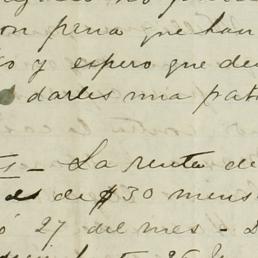 on pena que han
o y espero que de
darles una pat
- La renta de
es de $30 mens
ó 27 del mes -